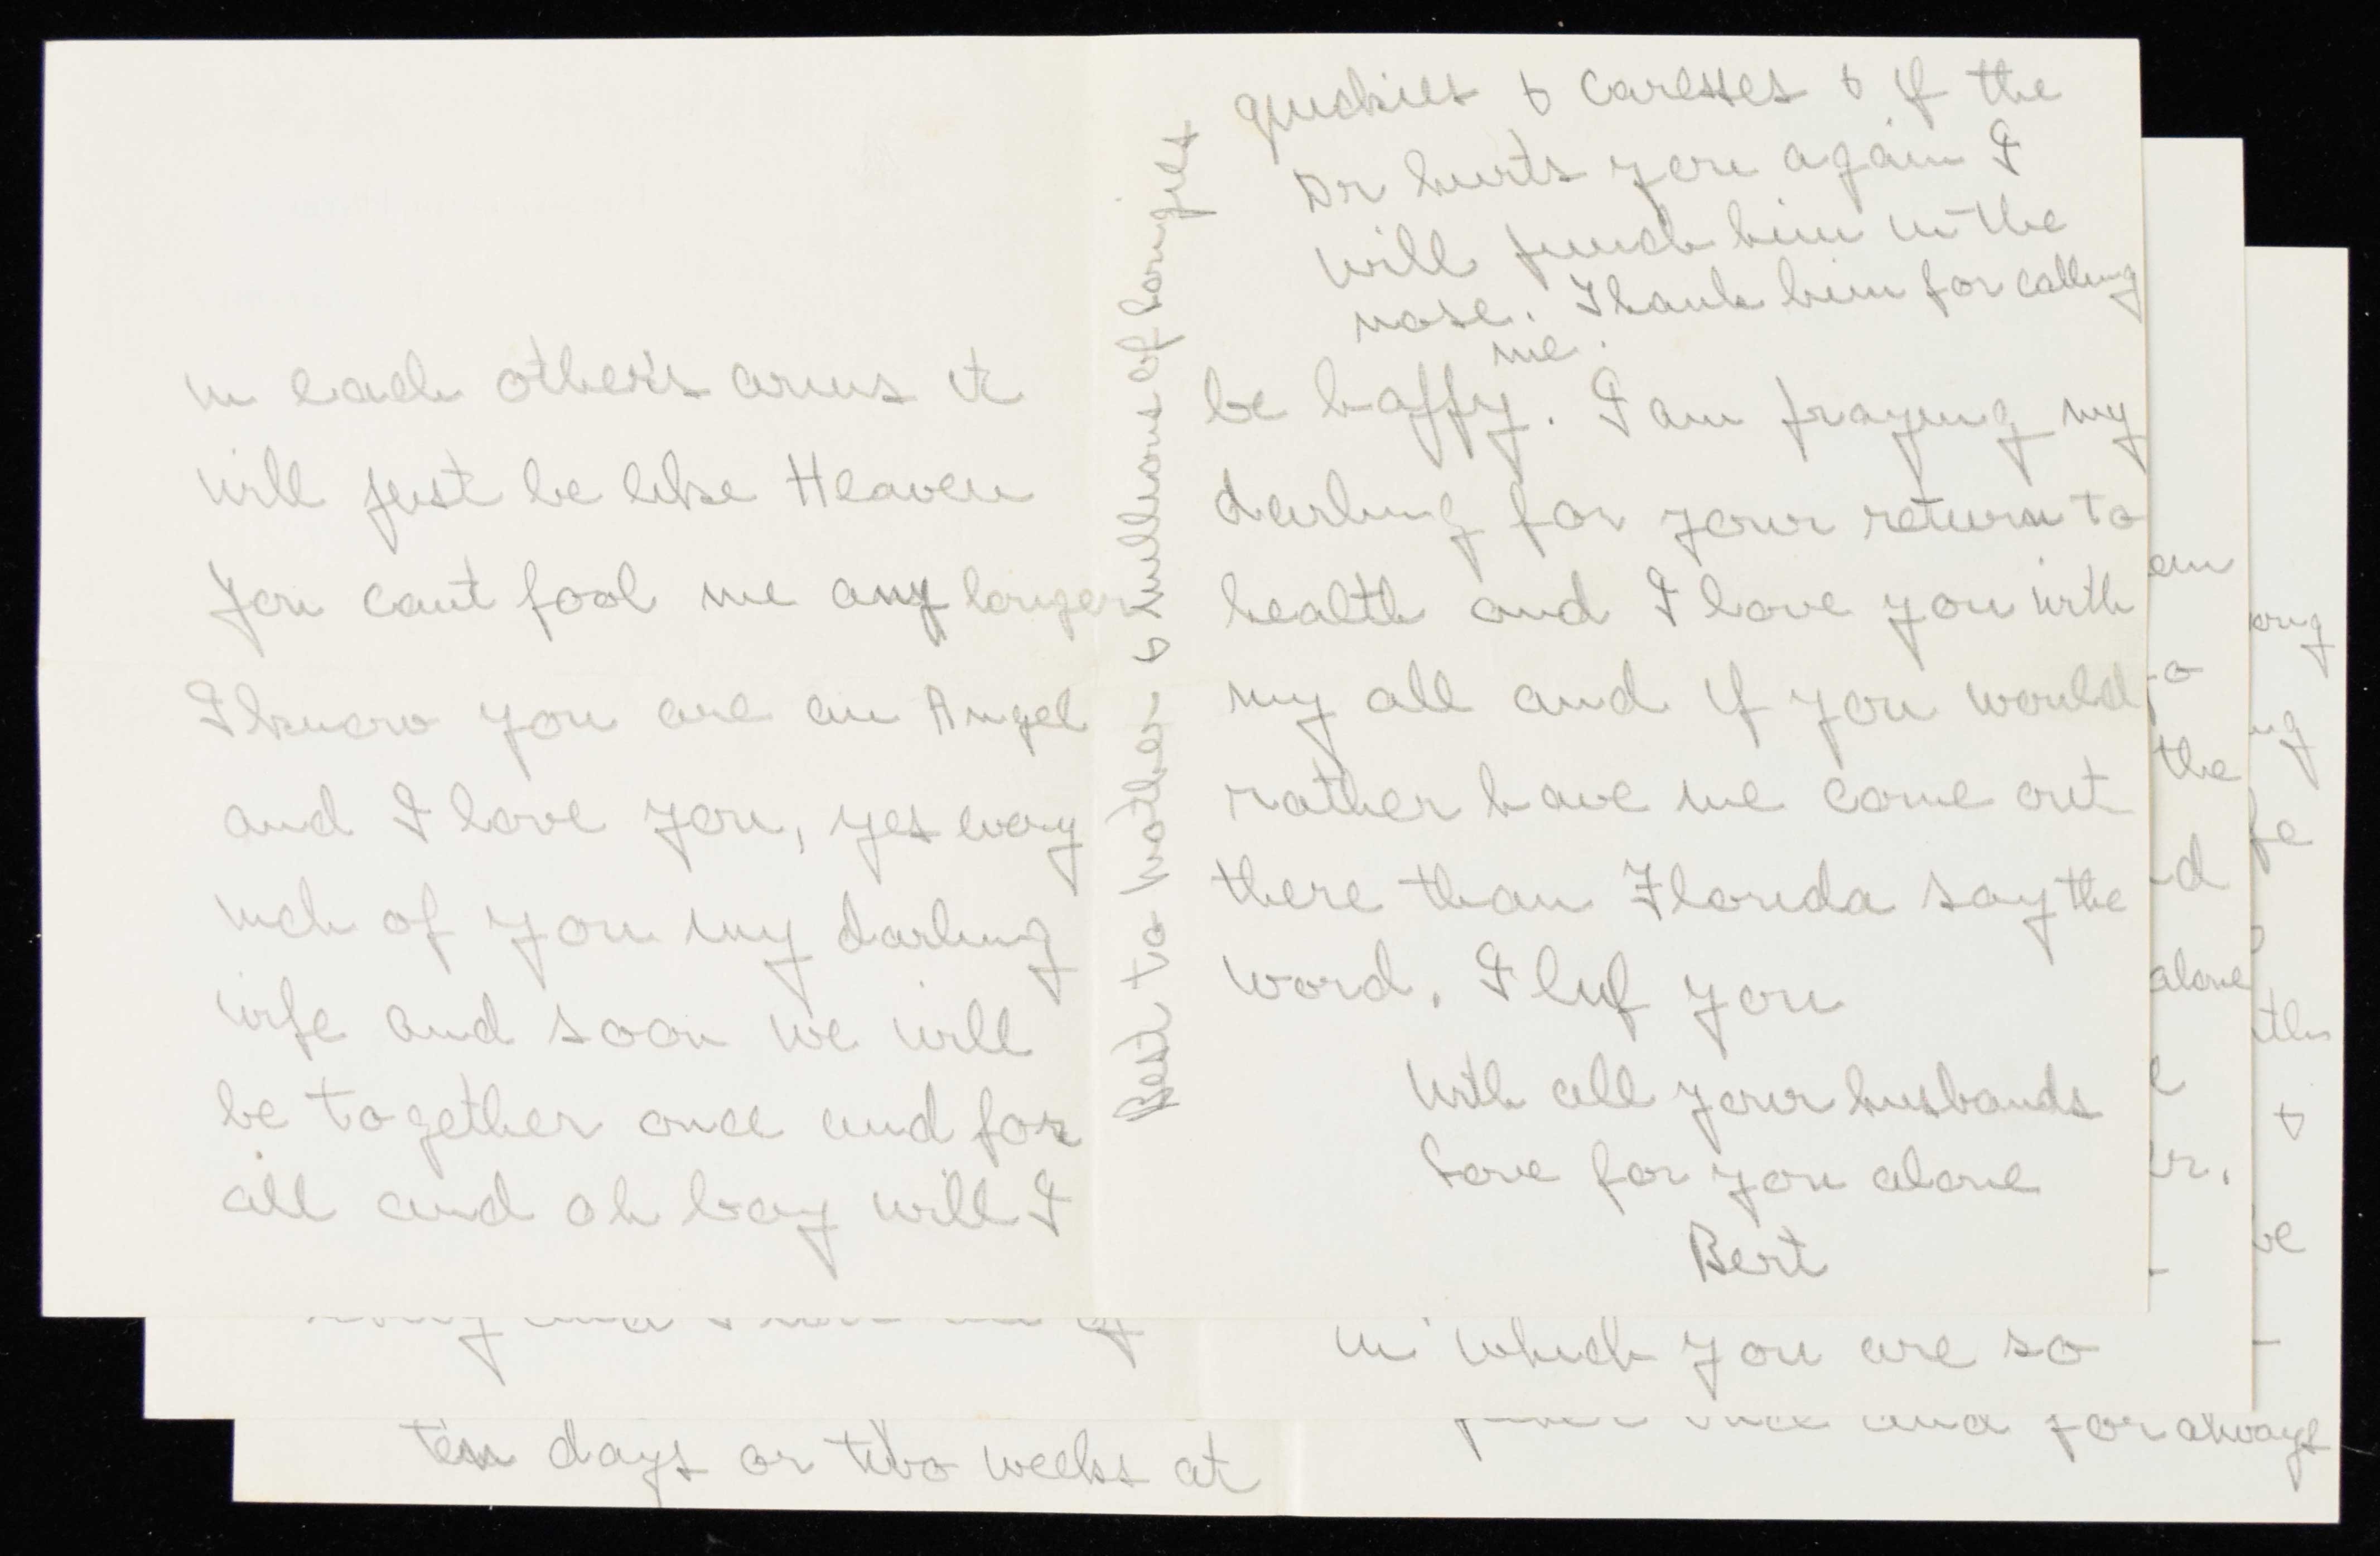 in each other's arms it
will just be like Heaven
You cant fool me any longer
I know you are an Angel
and I love you, yes every
inch of you my darling
wife and soon we will
be together once and for
all and oh boy will I
be happy. I am praying my
darling for your return to
health and I love you with
my all and if you would
rather have me come out
there than Florida say the
word. I luf you
With all your husbands
Love for you alone
Bert
Best to Mother & millions of
& caresses & if the
Dr hurts you again I
will punch him in the
nose. Thank him for calling
me.
the
alone
&
be
in which you are so
ten days or two weeks at
and for always